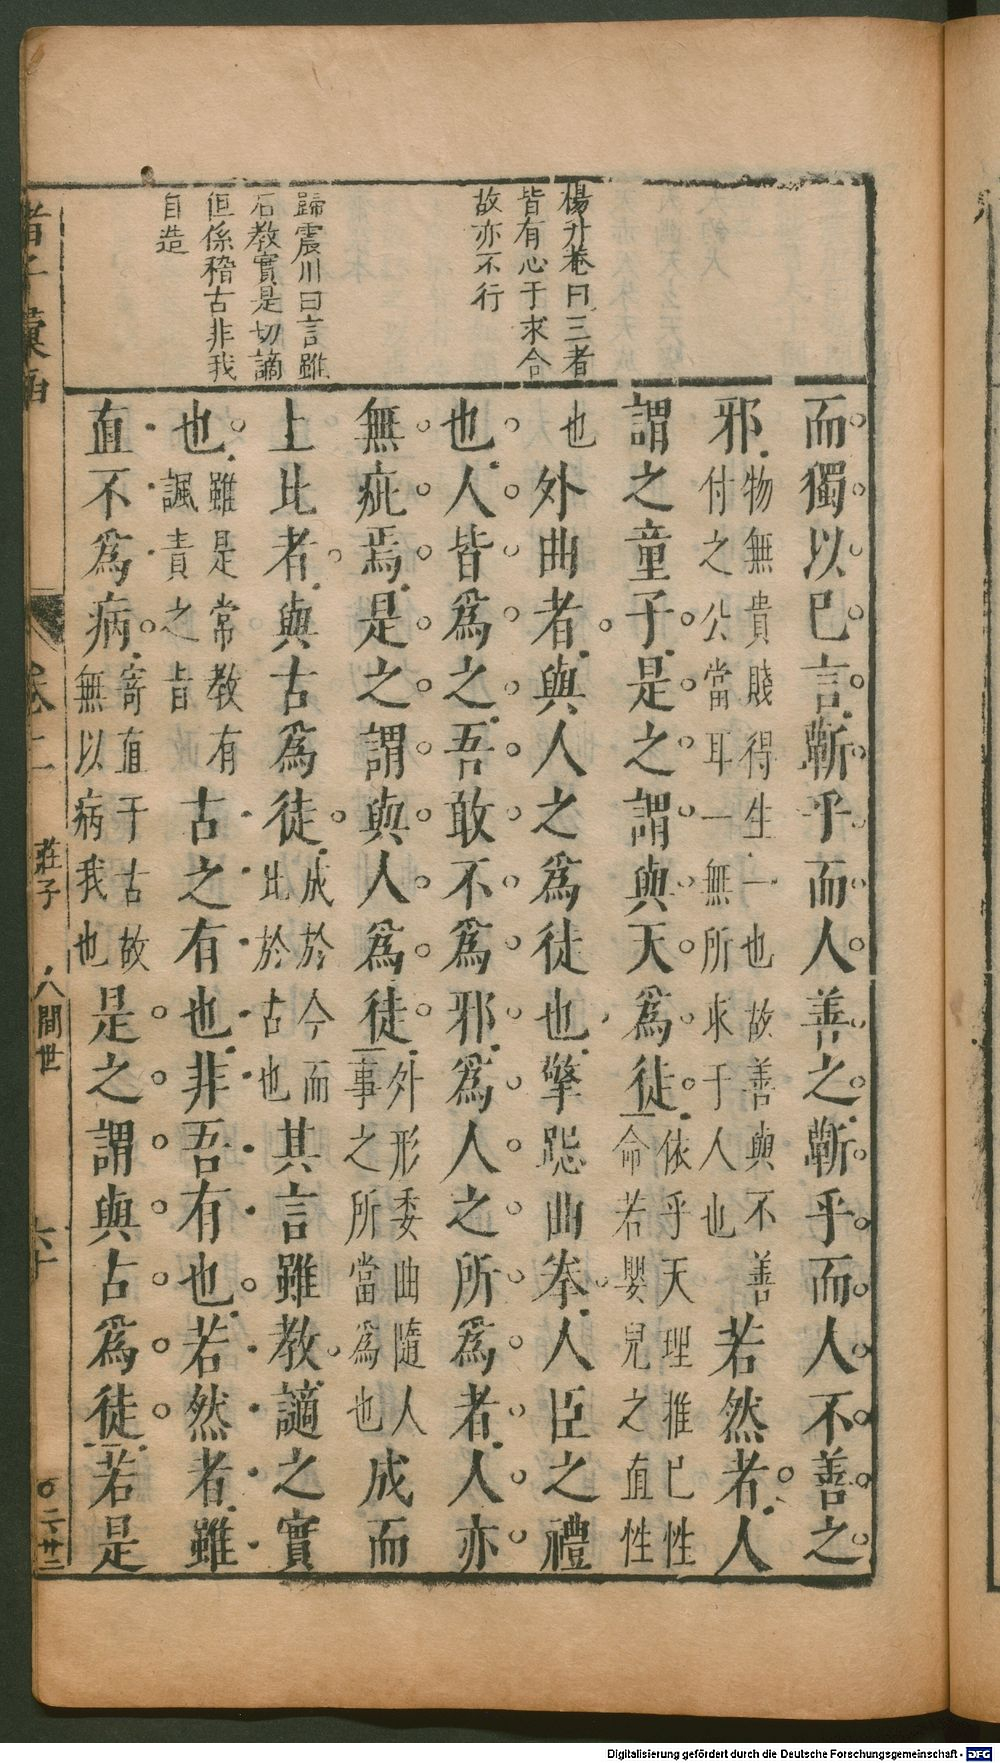 楊升菴曰三者
皆有心于求合
故亦不行
歸震川曰言雖
若教實是切謫
但係稽古非我
自造
而獨以已言蘄乎而人善之蘄乎而人不善之
邪物無貴賤得生一也故善與不善付之公當耳一無所求于人也若然者人
謂之童子是之謂與天為徒依乎天理推已性命若嬰兒之直性
也外曲者與人之為徒也擎跽曲拳人臣之禮
也人皆為之吾敢不為邪為人之所為者人亦
無疵焉是之謂與人為徒外形委曲隨人事之所當為也成而
上比者與古為徒成於今而比於古也其言雖教讁之實
也雖是常教有諷責之旨古之有也非吾有也若然者雖
直不為病寄直于古故無以病我也是之謂與古為徒若是
諸子彙函
卷二
莊子
人間世
六十
二廿三
Digitalisierung gefördert durch die Deutsche Forschungsgemeinschaft - DFG